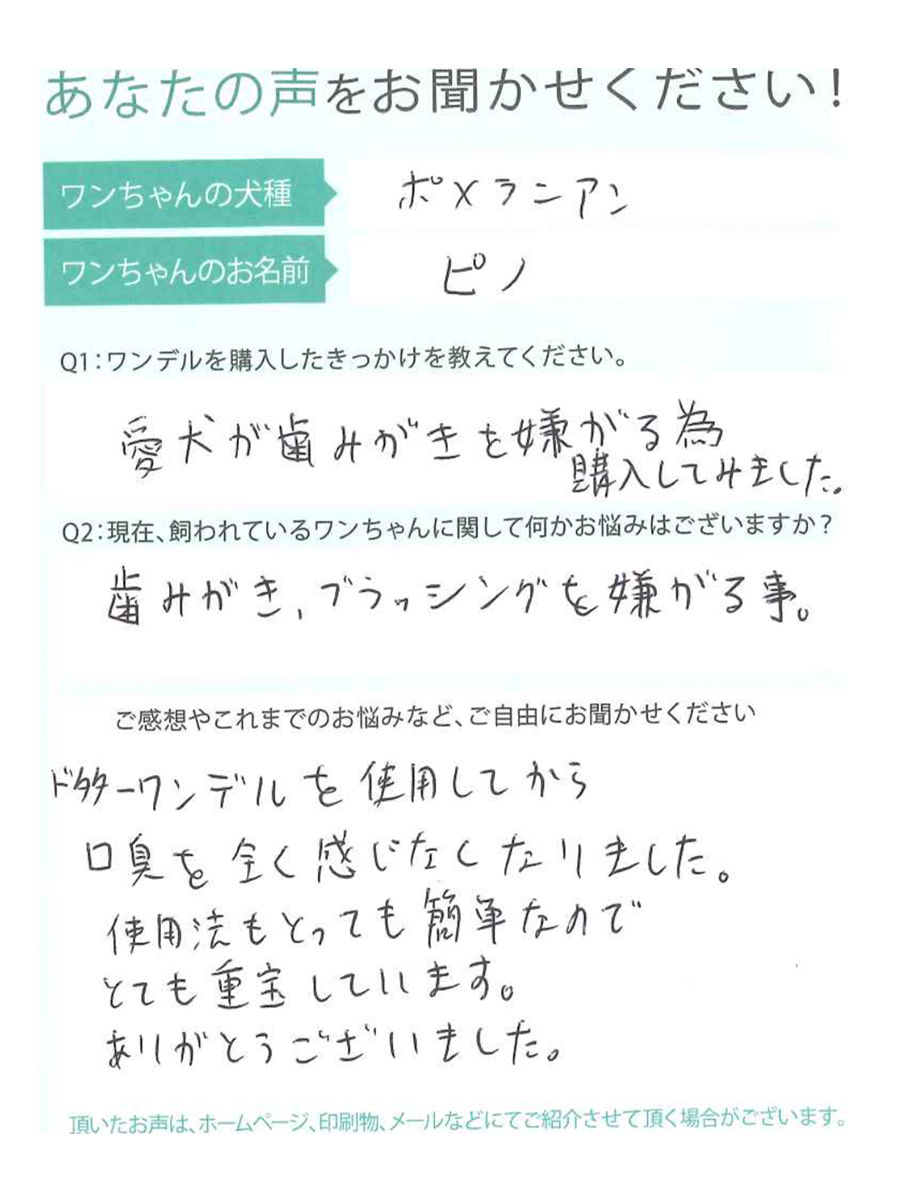 あなたの声をお聞かせください!
ワンちゃんの犬種
ポメラニアン
ワンちゃんのお名前
ピノ
Q1:ワンデルを購入したきっかけを教えてください。
愛犬が歯みがきを嫌がる為
購入してみました。
Q2:現在、飼われているワンちゃんに関して何かお悩みはございますか?
歯みがき、ブラッシングを嫌がる事。
ご感想やこれまでのお悩みなど、ご自由にお聞かせください
ドクターワンデルを使用してから
口臭を全く感じなくなりました。
使用法もとっても簡単なので
とても重宝しています。
ありがとうございました。
頂いたお声は、ホームページ、印刷物、メールなどにてご紹介させて頂く場合がございます。